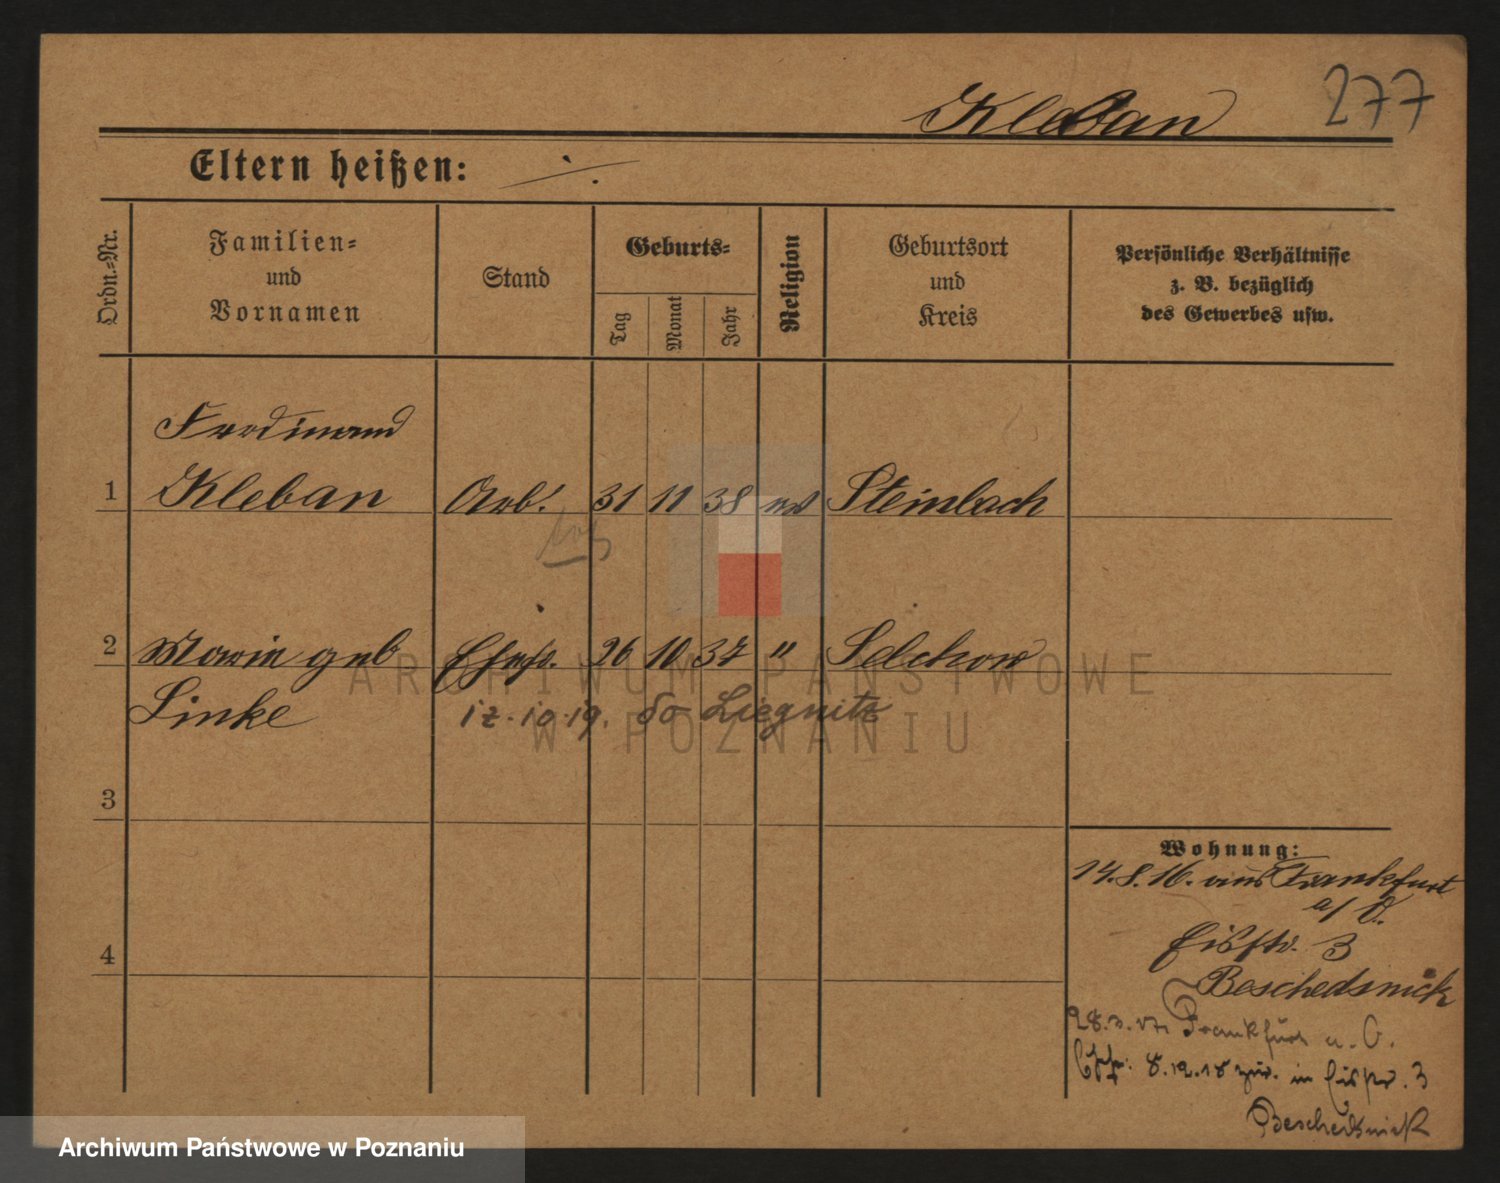 277
Kleban
Eltern heißen: ./.
Ordn.-Nr.
Familien-
und
Vornamen
Stand
Geburts-
Tag
Monat
Jahr
Religion
Geburtsort
und
Kreis
Persönliche Verhältnisse
z. B. bezüglich
des Gewerbes usw.
Ferdinand
1 Kleban Arb. 31 11 38 ev Steinbach
2 Marie geb Ehefr. 26 10 37 " Selchow
Linke 12.10.19. do Liegnitz
3
4
Wohnung:
14.8.16. aus Frankfurt
a/ O.
3
Beschedsnick
28.3.17. Frankfurt a. O.
8.12.18 zur. in 3
Beschedsnick
ARCHIWUM PAŃSTWOWE
W POZNANIU
Archiwum Państwowe w Poznaniu